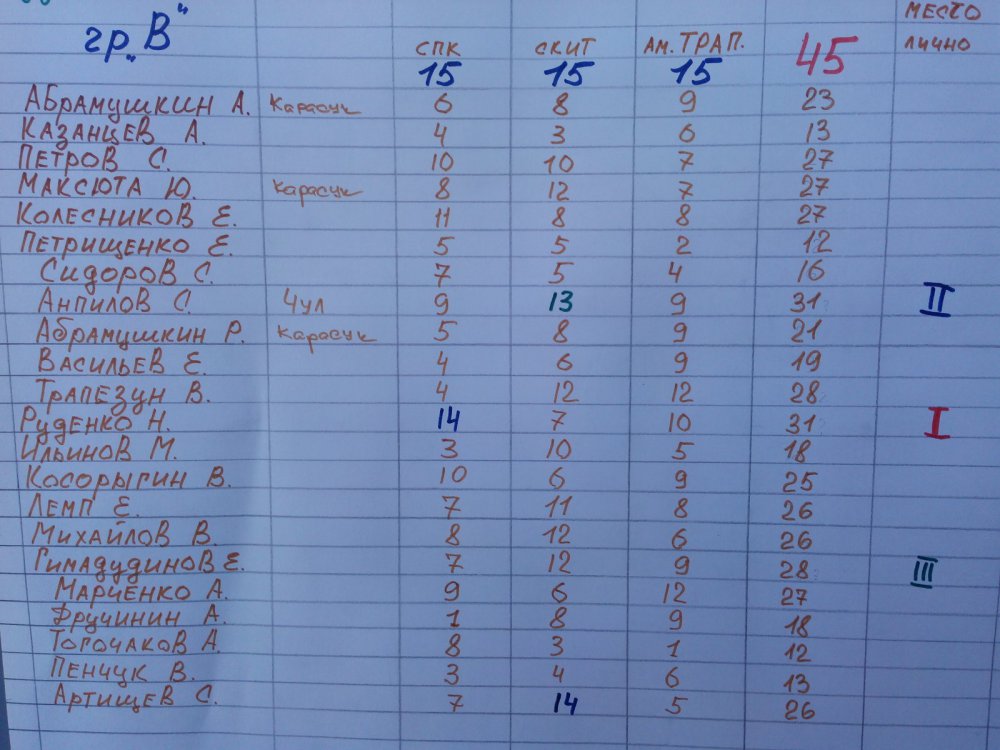 МЕСТО
гр. „В" СПК СКИТ АМ. ТРАП. 45 ЛИЧНО
15 15 15
АБРАМУШКИН А. Карасук 6 8 9 23
КАЗАНЦЕВ А. 4 3 6 13
ПЕТРОВ С. 10 10 7 27
МАКСЮТА Ю. Карасук 8 12 7 27
КОЛЕСНИКОВ Е. 11 8 8 27
ПЕТРИЩЕНКО Е. 5 5 2 12
СИДОРОВ С. 7 5 4 16
АНПИЛОВ С. Чул 9 13 9 31 II
АБРАМУШКИН Р. Карасук 5 8 9 21
ВАСИЛЬЕВ Е. 4 6 9 19
ТРАПЕЗУН В. 4 12 12 28
РУДЕНКО Н. 14 7 10 31 I
ИЛЬИНОВ М. 3 10 5 18
КОСОРЫГИН В. 10 6 9 25
ЛЕМП Е. 7 11 8 26
МИХАЙЛОВ В. 8 12 6 26
ГИМАДУДИНОВ Е. 7 12 9 28 III
МАРЧЕНКО А. 9 6 12 27
ФРУЧИНИН А. 1 8 9 18
ТОГОЧАКОВ А. 8 3 1 12
ПЕНЧУК В. 3 4 6 13
АРТИЩЕВ С. 7 14 5 26